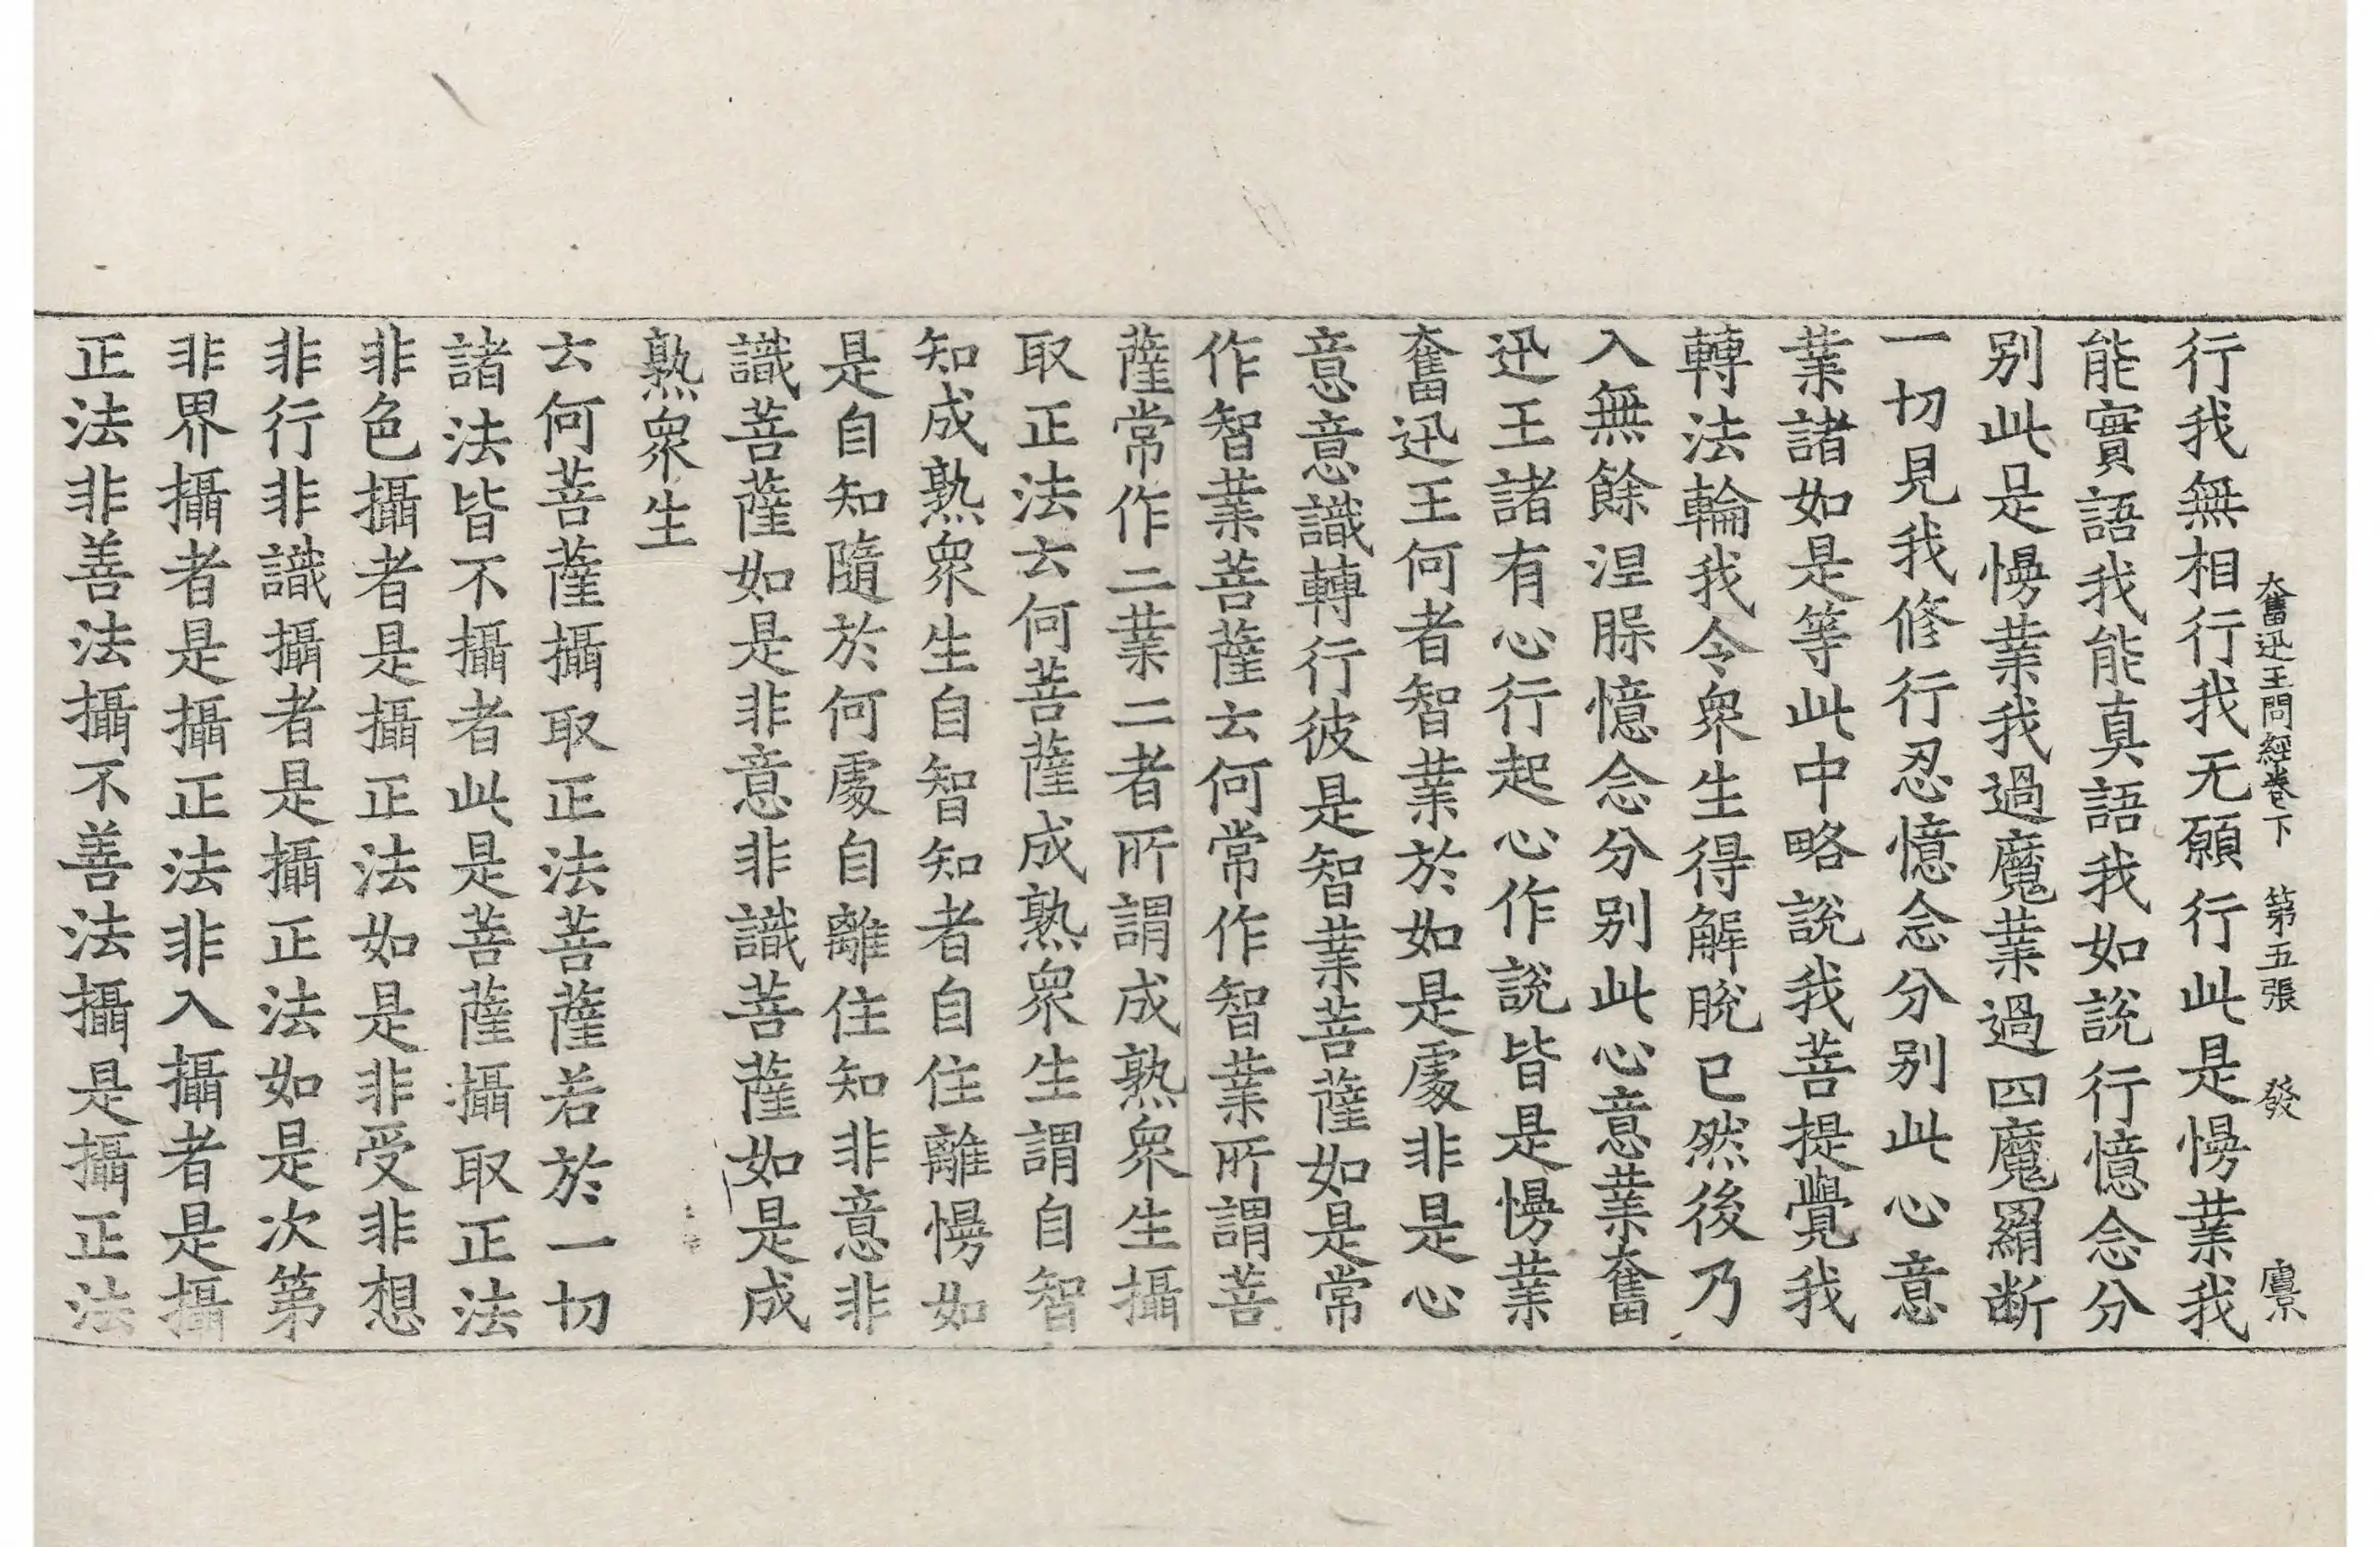 奮迅王問經卷下 第五張 發 㢡
行我無相行我无願行此是慢業我
能實語我能真語我如說行憶念分
别此是慢業我過魔業過四魔羂断
一切見我修行忍憶念分别此心意
業諸如是等此中略說我菩提覺我
轉法輪我令衆生得解脫已然後乃
入無餘涅槃憶念分别此心意業奮
迅王諸有心行起心作說皆是慢業
奮迅王何者智業於如是處非是心
意意識轉行彼是智業菩薩如是常
作智業菩薩云何常作智業所謂菩
薩常作二業二者所謂成熟衆生攝
取正法云何菩薩成熟衆生謂自智
知成熟衆生自智知者自住離慢如
是自知隨於何處自離住知非意非
識菩薩如是非意非識菩薩如是成
熟衆生
云何菩薩攝取正法菩薩若於一切
諸法皆不攝者此是菩薩攝取正法
非色攝者是攝正法如是非受非想
非行非識攝者是攝正法如是次第
非界攝者是攝正法非入攝者是攝
正法非善法攝不善法攝是攝正法